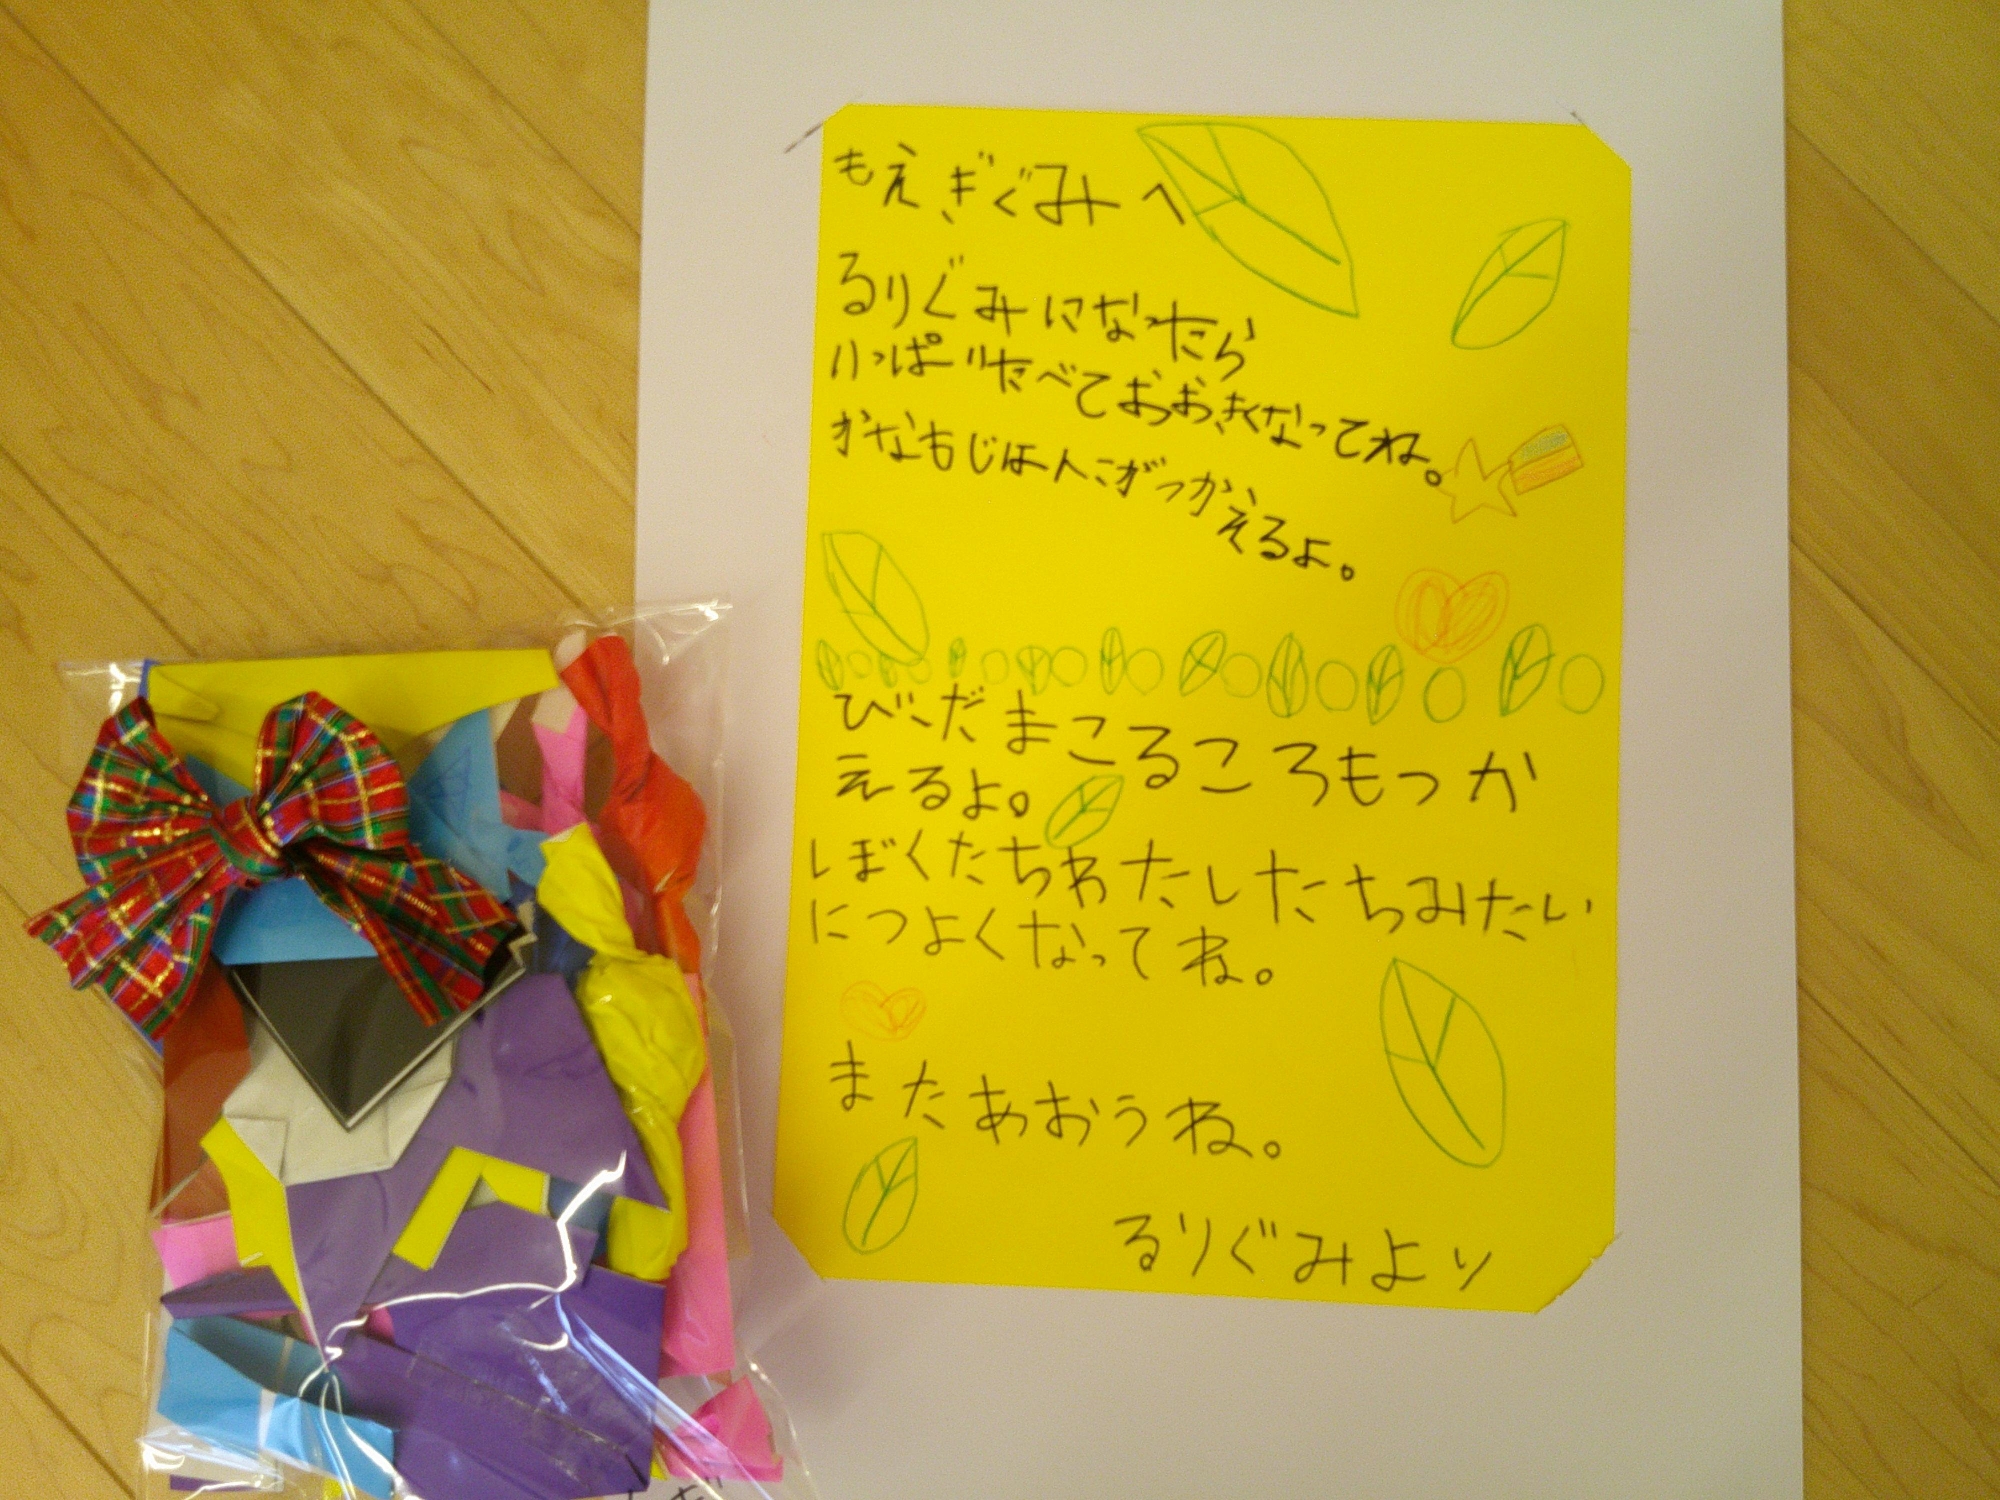 もえぎぐみへ
るりぐみになったら
いっぱいたべておおきくなってね。
かなもじはんこがつかえるよ。
びいだまころころもつか
えるよ。
ぼくたちわたしたちみたい
につよくなってね。
またあおうね。
るりぐみより